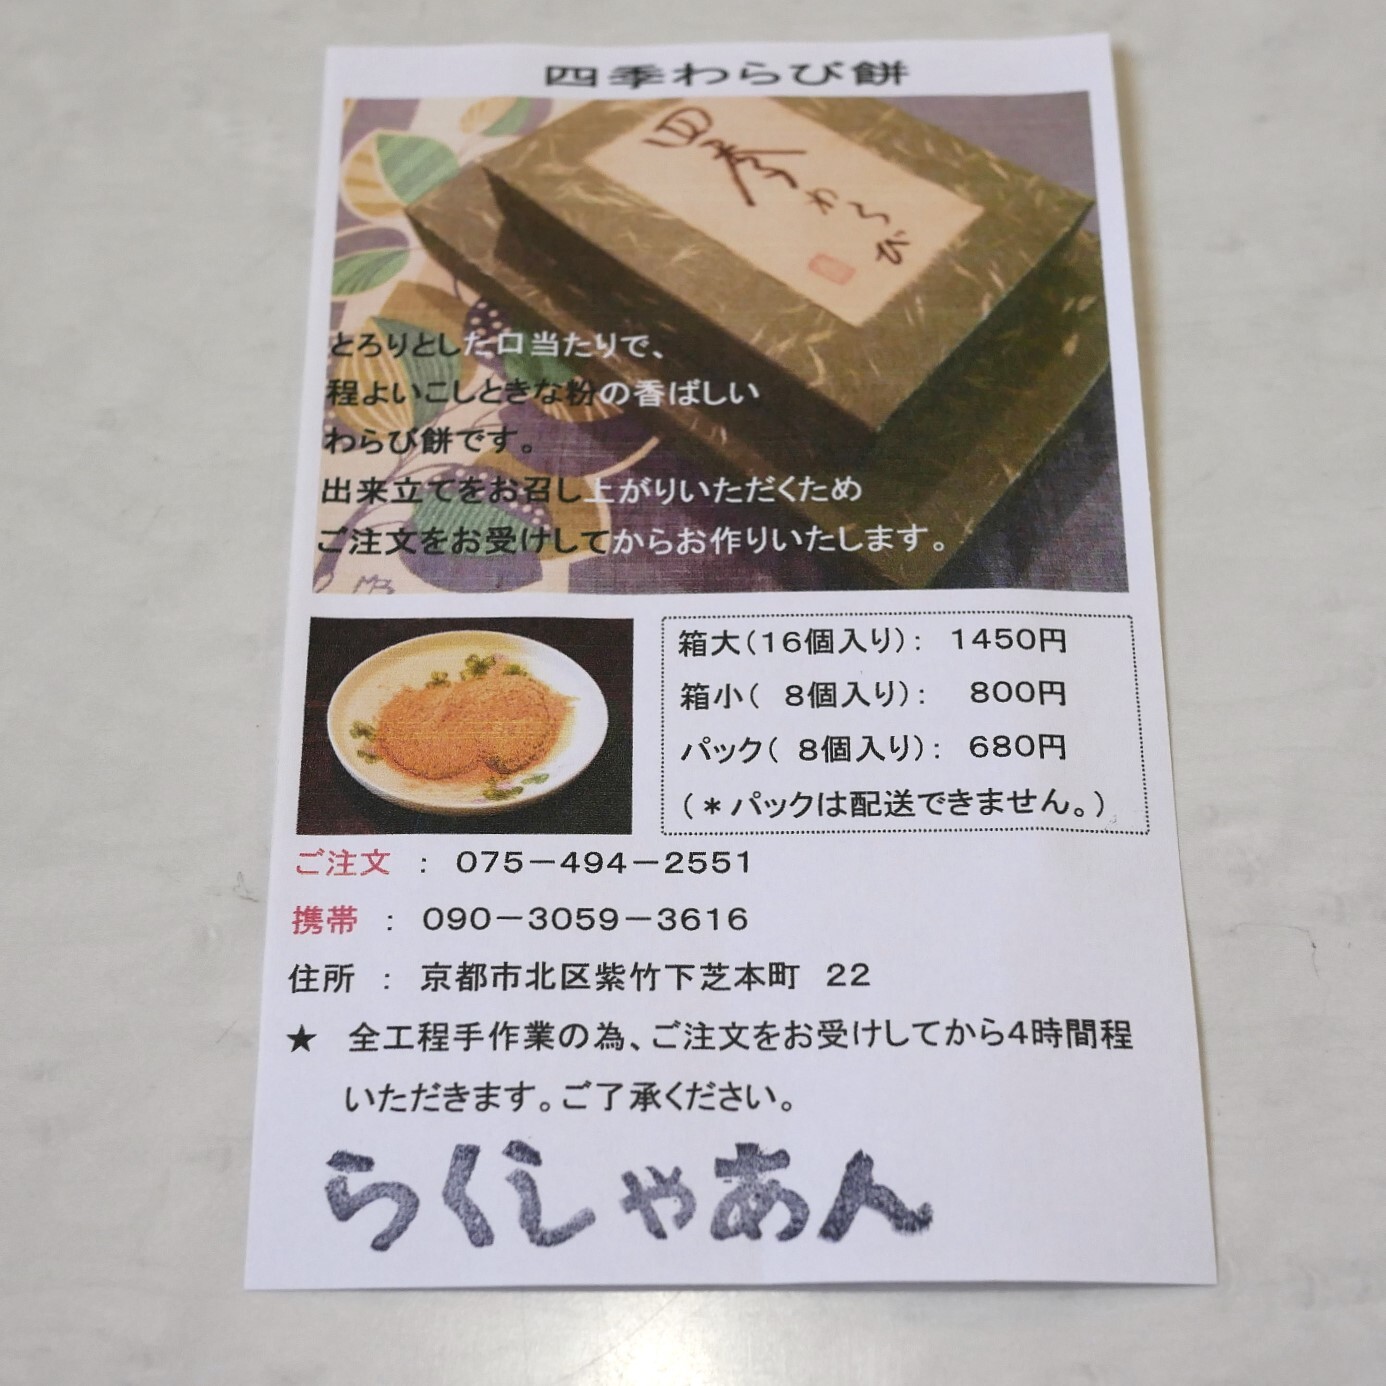 四季わらび餅
四季わらび
とろりとした口当たりで、
程よいこしときな粉の香ばしい
わらび餅です。
出来立てをお召し上がりいただくため
ご注文をお受けしてからお作りいたします。
箱大(16個入り): 1450円
箱小( 8個入り): 800円
パック( 8個入り): 680円
(*パックは配送できません。)
ご注文 : 075-494-2551
携帯 : 090-3059-3616
住所 : 京都市北区紫竹下芝本町 22
★ 全工程手作業の為、ご注文をお受けしてから4時間程
いただきます。ご了承ください。
らくしゃあん